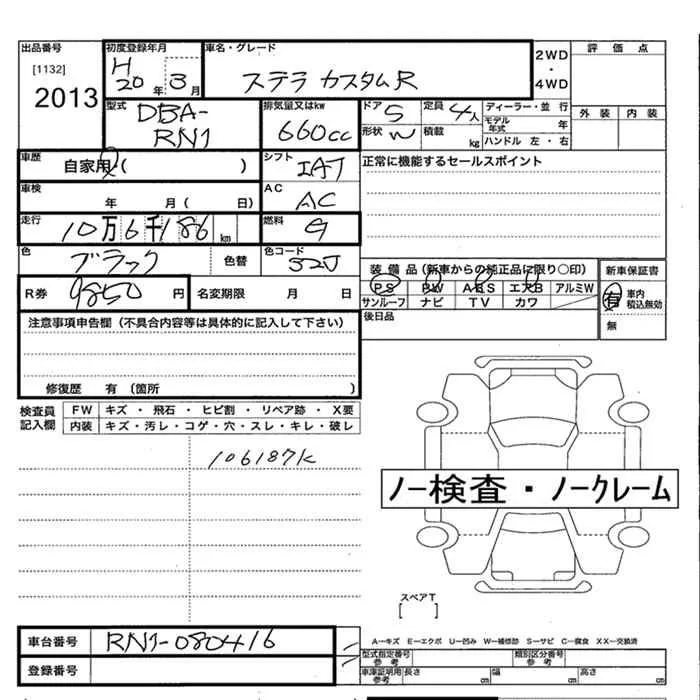 出品番号 初度登録年月 車名・グレード 2WD・4WD 評価点
[1132] H
2013 20年 3月 ステラ カスタムR
型式 DBA-RN1 排気量又はkw 660cc ドア 5 定員 4人 ディーラー・並 行
形状 W 積載 kg モデル年式 年 外装 内装
ハンドル 左・右
車歴 自家用・( ) シフト IAT 正常に機能するセールスポイント
車検 年 月( 日) AC AC
走行 10万6千186km 燃料 G
色 ブラック 色替 色コード 32J
装備品(新車からの純正品に限り○印) 新車保証書
R券 9850円 名変期限 月 日 PS PW ABS エアB アルミW 有 車内積込無効
サンルーフ ナビ TV カワ
注意事項申告欄(不具合内容等は具体的に記入して下さい) 後日品 無
修復歴 有(箇所 )
検査員記入欄 FW キズ・飛石・ヒビ割・リペア跡・X要
内装 キズ・汚レ・コゲ・穴・スレ・キレ・破レ
106187K
ノー検査・ノークレーム
スペアT
[ ]
車台番号 RN1-080416 A-キズ E-エクボ U-凹み W-補修跡 S-サビ C-腐食 XX-交換済
型式指定番号 参考 類別区分番号 参考
登録番号 車庫証明用 参考 長さ cm 幅 cm 高さ cm